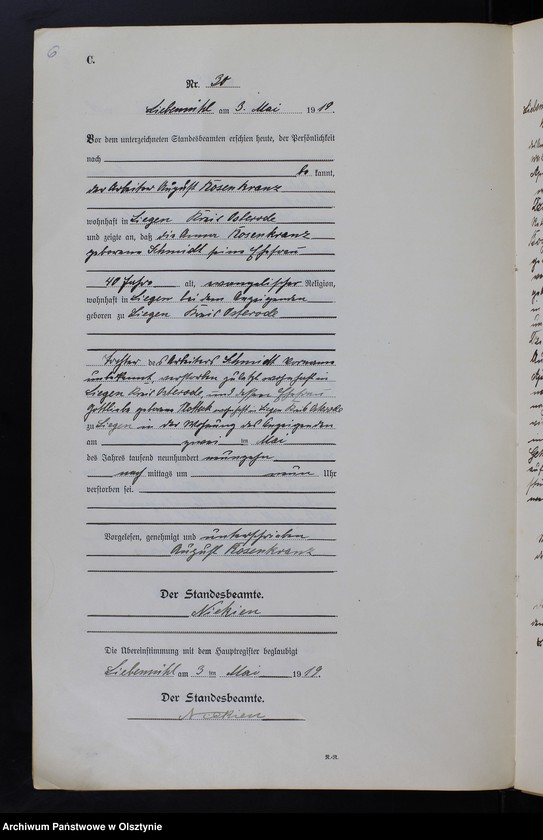 6
C.
Nr. 30
Liebemühl am 3. Mai 1919.
Vor dem unterzeichneten Standesbeamten erschien heute, der Persönlichkeit
nach
be kannt,
der Arbeiter August Rosenkranz
wohnhaft in Liegen Kreis Osterode
und zeigte an, daß die Anna Rosenkranz
geborene Schmidt seine Ehefrau
40 Jahre alt, evangelischer Religion,
wohnhaft in Liegen bei dem Anzeigenden
geboren zu Liegen Kreis Osterode
Tochter des Arbeiters Schmidt Vorname
unbekannt, verstorben zuletzt wohnhaft in
Liegen Kreis Osterode, und dessen Ehefrau
Gottliebe geborene wohnhaft in Liegen Kreis Osterode
zu Liegen in der Wohnung des Anzeigenden
am zwei ten Mai
des Jahres tausend neunhundert neunzehn
nach mittags um neun Uhr
verstorben sei.
Vorgelesen, genehmigt und unterschrieben
August Rosenkranz
Der Standesbeamte.
Niekien
Die Übereinstimmung mit dem Hauptregister beglaubigt
Liebemühl am 3 ten Mai 1919.
Der Standesbeamte.
Niekien
Archiwum Państwowe w Olsztynie